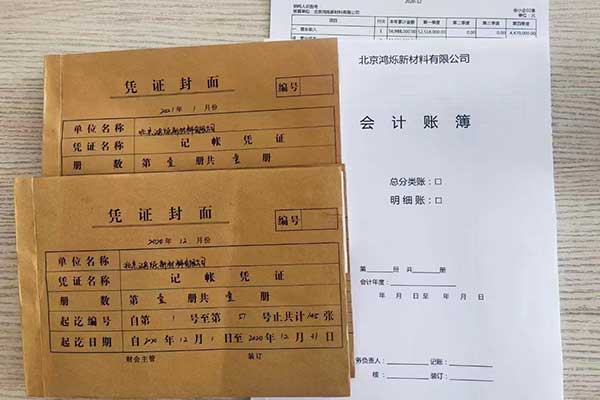 凭证封面
编号
2021年 1 月份
单位名称 北京鸿烁新材料有限公司
凭证名称 记帐凭证
册数 第壹册共壹册
凭证封面
编号
2020年 12 月份
单位名称 北京鸿烁新材料有限公司
凭证名称 记帐凭证
册数 第壹册共壹册
起讫编号 自第 1 号至第 57 号止共计 145 张
起讫日期 自2020年12月1日至2020年12月31日
财会主管 装订
2020-12
纳税人识别号
会小企02表
北京鸿烁新材料有限公司
单位:元
项目 行次 本年累计金额 第一季度 第二季度 第三季度 第四季度
一、营业收入 1 0.00 0.00
北京鸿烁新材料有限公司
会计账簿
总分类账:□
明细账:□
第 册 共 册
会计年度:
年 月 日 至 年 月 日
务负责人: 记账:
核: 装订: